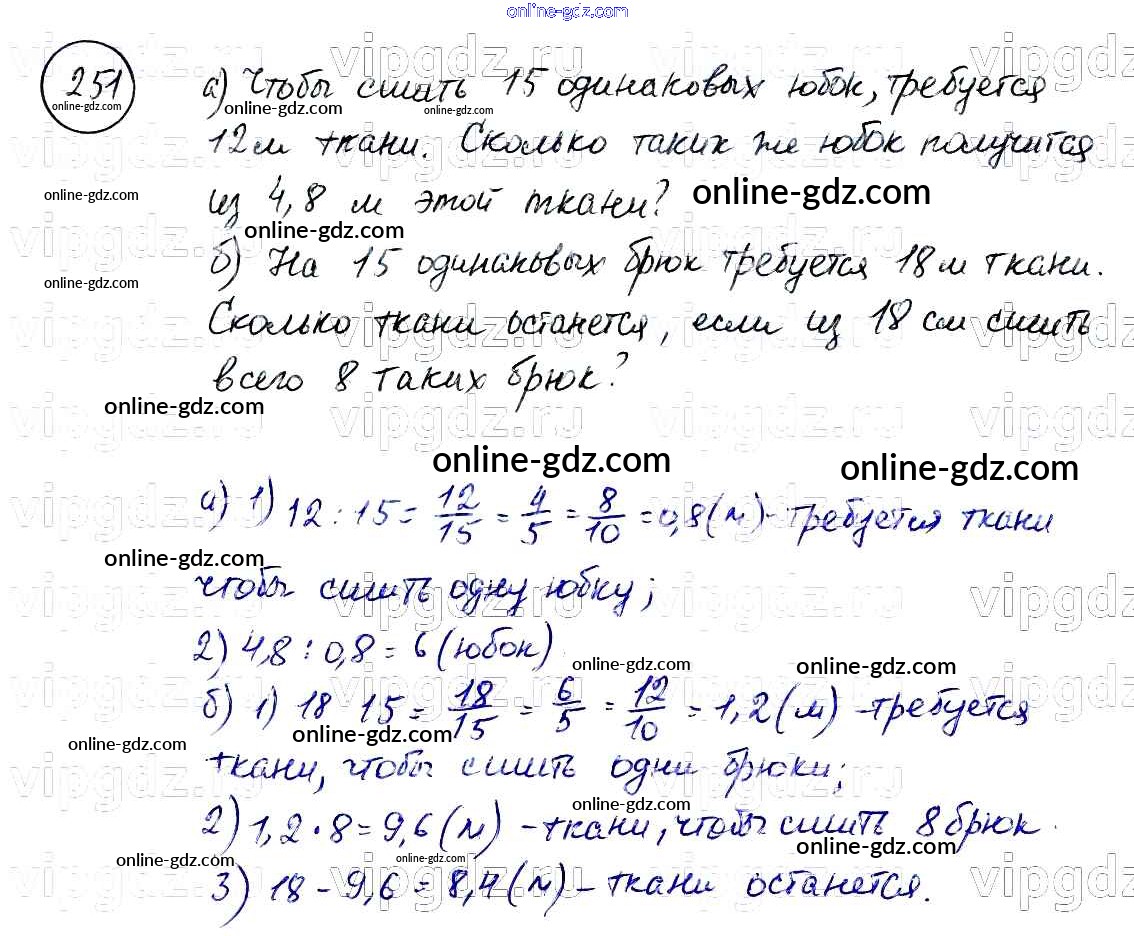 online-gdz.com
251
online-gdz.com
а) Чтобы сшить 15 одинаковых юбок, требуется
online-gdz.com online-gdz.com
12 м ткани. Сколько таких же юбок получится
online-gdz.com
из 4,8 м этой ткани? online-gdz.com
online-gdz.com
б) На 15 одинаковых брюк требуется 18 м ткани.
online-gdz.com
Сколько ткани останется, если из 18 см сшить
всего 8 таких брюк?
online-gdz.com
online-gdz.com online-gdz.com
а) 1) 12 : 15 = 12/15 = 4/5 = 8/10 = 0,8 (м) - требуется ткани
online-gdz.com
чтобы сшить одну юбку;
2) 4,8 : 0,8 = 6 (юбок)
online-gdz.com online-gdz.com
б) 1) 18 15 = 18/15 = 6/5 = 12/10 = 1,2 (м) - требуется
online-gdz.com online-gdz.com
ткани, чтобы сшить одни брюки;
online-gdz.com
2) 1,2 · 8 = 9,6 (м) - ткани, чтобы сшить 8 брюк.
online-gdz.com online-gdz.com online-gdz.com
3) 18 - 9,6 = 8,4 (м) - ткани останется.
vipgdz.ru